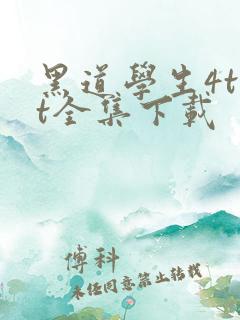 黑道學生4t
t全集下載
傅科
未経同意禁止轉載